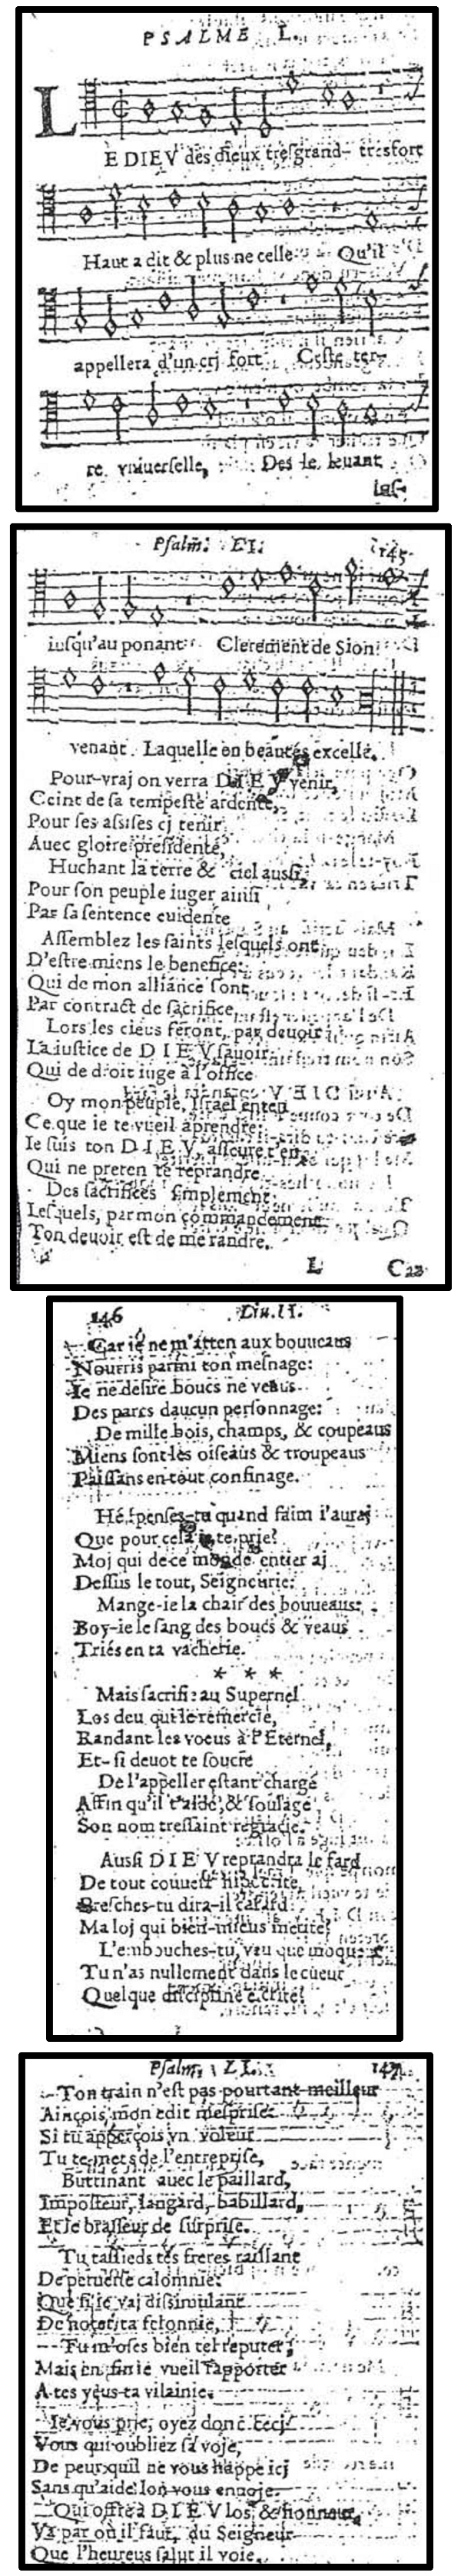 PSALME L.
LE DIEV des dieux tresgrand- tresfort
Haut a dit & plus ne celle Qu'il
appellera d'un crj fort Ceste ter-
re vniuerselle, Des le leuant
ius-
Psalm. LI. 145
iusqu'au ponant Clerement de Sion
venant. Laquelle en beautés excelle.
Pour-vraj on verra DIEV venir,
Ceint de sa tempeste ardente,
Pour ses assises cj tenir
Auec gloire presidente,
Huchant la terre & ciel aussi,
Pour son peuple iuger ainsi
Par sa sentence euidente
Assemblez les saints lesquels ont
D'estre miens le benefice:
Qui de mon alliance sont
Par contract de sacrifice,
Lors les cieus feront, par deuoir
La iustice de DIEV sauoir
Qui de droit iuge a l'office
Oy mon peuple, Israel enten
Ce que ie te vueil aprendre:
Ie suis ton DIEV, asseure t'en,
Qui ne preten te reprandre
Des sacrifices simplement
Lesquels, par mon commandement
Ton deuoir est de me randre.
L Car
146 Liu. II.
Car ie ne m'atten aux bouueaus
Nourris parmi ton mesnage:
Ie ne desire boucs ne veaus
Des parcs daucun personnage:
De mille bois, champs, & coupeaus
Miens sont les oiseaus & troupeaus
Paissans en tout confinage.
Hé, penses-tu quand faim i'auraj
Que pour cela ie te prie?
Moj qui de ce monde entier aj
Dessus le tout, Seigneurie:
Mange-ie la chair des bouueaus:
Boy-ie le sang des boucs & veaus
Triés en ta vacherie.
* * *
Mais sacrifi: au Supernel
Los deu qui le remercie,
Randant les voeus à l'Eternel,
Et-si deuot te soucie
De l'appeller estant chargé
Affin qu'il t'aide, & soulagé
Son nom tressaint regracie.
Aussi DIEV reprandra le fard
De tout couuert hipocrite,
Presches-tu dira-il cafard
Ma loj qui bien-mieus merite?
L'embouches-tu, veu que moqueur
Tu n'as nullement dans le cueur
Quelque discipline escrite?
Psalm. LI. 147
Ton train n'est pas pourtant meilleur
Ainçois, mon edit mesprise:
Si tu apperçois vn voleur
Tu te mets de l'entreprise,
Buttinant auec le paillard,
Imposteur, langard, babillard,
Et le brasseur de surprise.
Tu tassieds tes freres taillant
De peruerse calomnie:
Que si ie vaj dissimulant
De noter ta felonnie,
Tu m'oses bien tel reputer,
Mais en fin ie vueil rapporter
A tes yeus ta vilainie.
Ie vous prie, oyez donc cecj
Vous qui oubliez sa voje,
De peur qu'il ne vous happe icj
Sans qu'aide lon vous enuoje.
Qui offre à DIEV los, & honneur,
Va par où il faut, du Seigneur
Que l'heureus salut il voie.